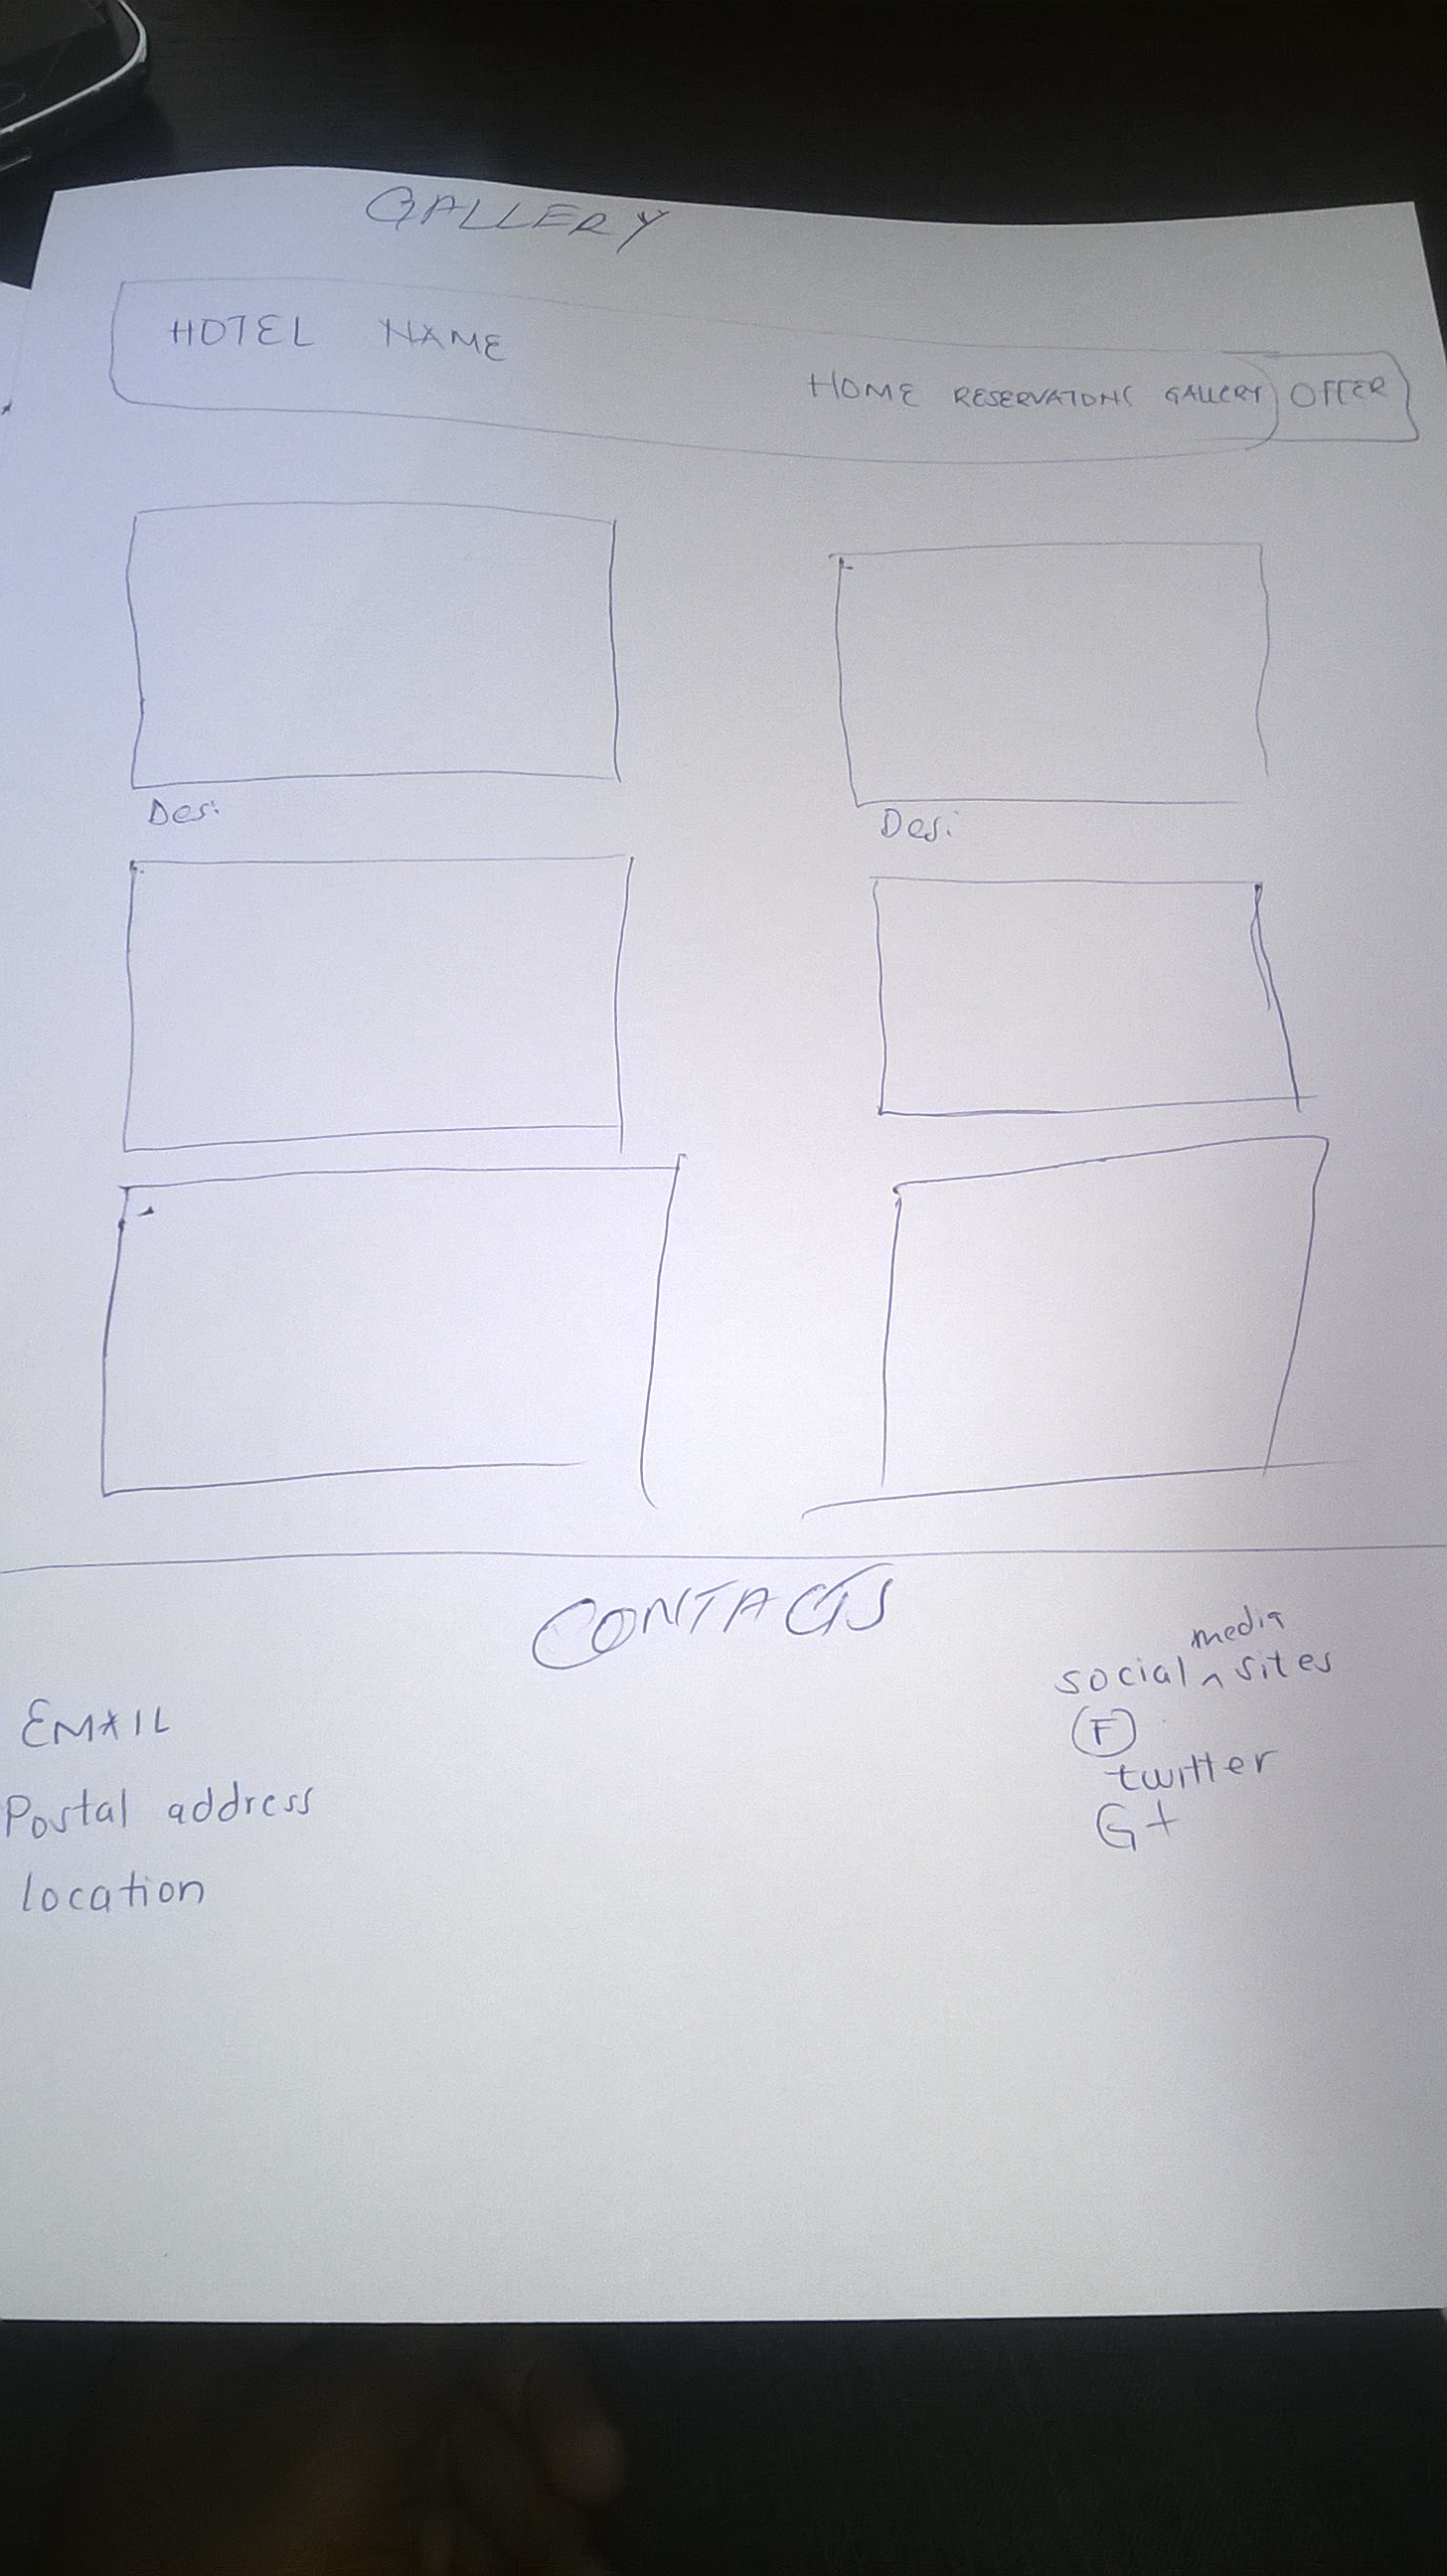 GALLERY
HOTEL NAME
HOME RESERVATIONS GALLERY OFFER
Des:
Des:
CONTACTS
EMAIL
Postal address
location
social media sites
F
twitter
G+